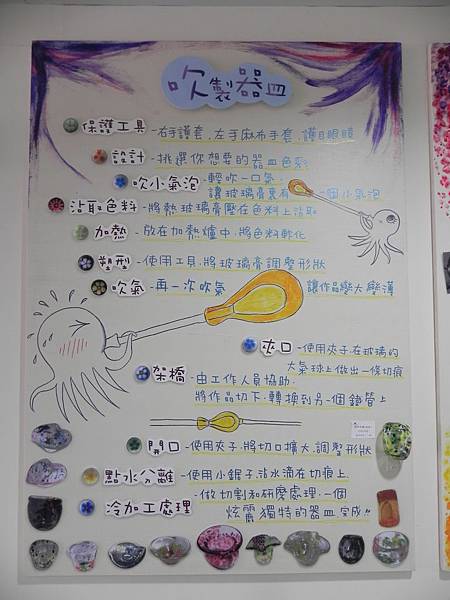 吹製器皿
保護工具-右手護套.左手麻布手套.護目眼鏡
設計-挑選你想要的器皿色系
吹小氣泡-輕吹一口氣.
讓玻璃膏裏有一個小氣泡
沾取色料-將熱玻璃膏壓在色料上沾取
加熱-放在加熱爐中.將色料軟化
塑型-使用工具.將玻璃膏調整形狀
吹氣-再一次吹氣 讓作品變大變薄
夾口-使用夾子.在玻璃的
大氣球上做出一條切痕
架橋-由工作人員協助.
將作品切下.轉換到另一個鐵管上
開口-使用夾子.將切口擴大.調整形狀
點水分離-使用小鋸子.沾水滴在切痕上
冷加工處理-做切割和研磨處理.一個
炫麗獨特的器皿完成!!